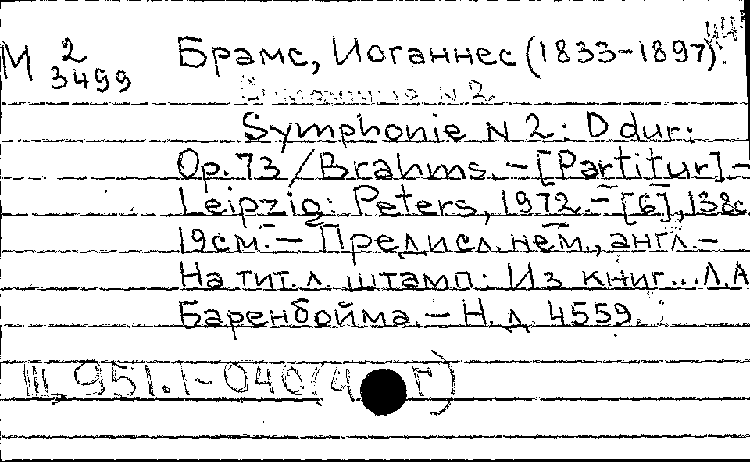 М 2
3499
Брамс, Иоганнес (1833-1897).
Симфония N 2.
Symphonie N 2: D dur:
Op. 73 / Brahms. – [Partitur]. –
Leipzig: Peters, 1972. – [6], 138с
19см. – Предисл. нем., англ. –
На тит. л. штамп: Из книг... Л.А
Баренбойма. – Н. д. 4559.
III, 951.1-040(4 Г)